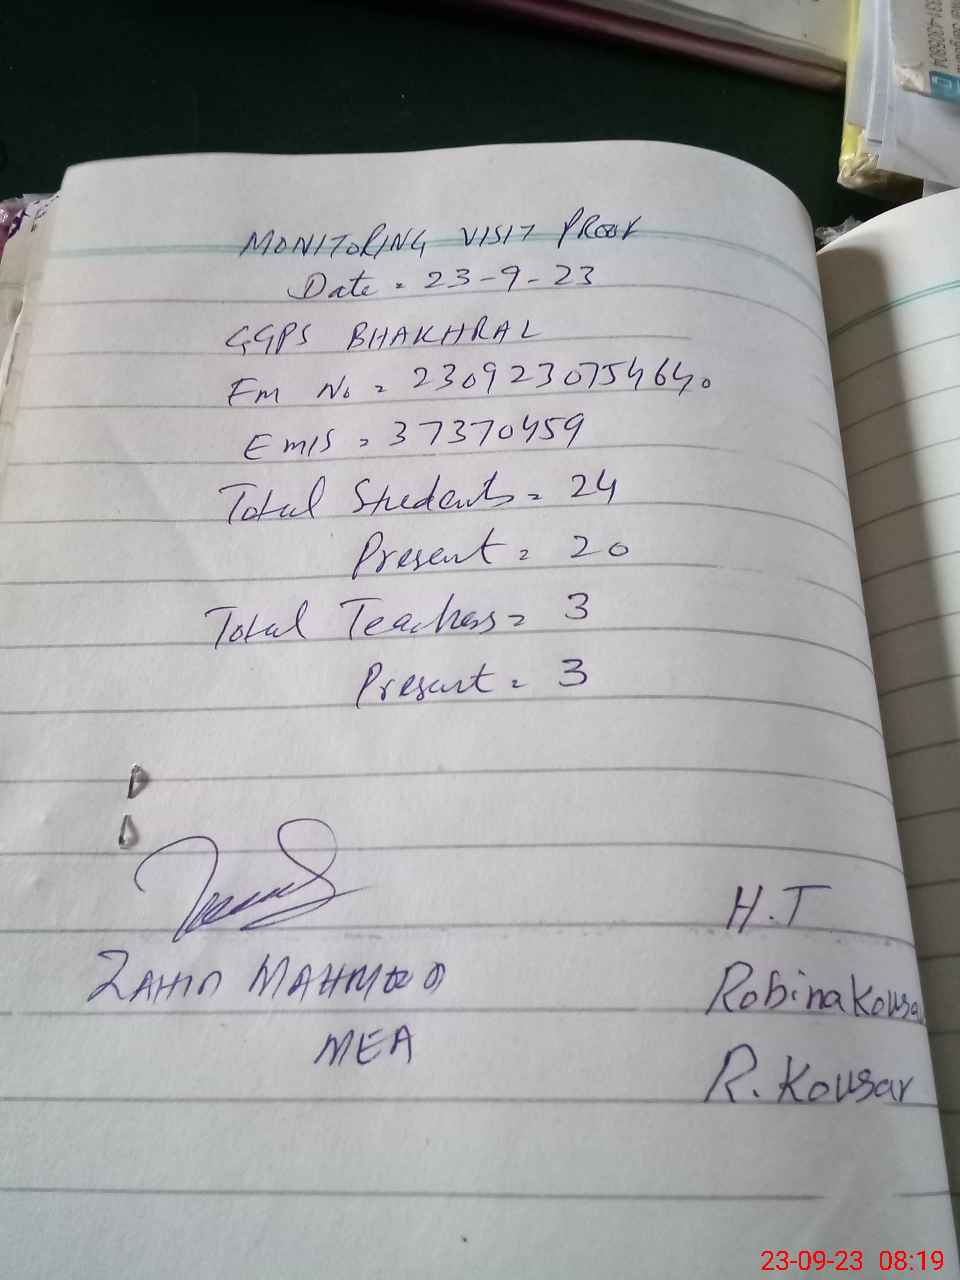 MONITORING VISIT PROOF
Date = 23-9-23
GGPS BHAKHRAL
Em No = 2309230754640
EMIS = 37370459
Total Students = 24
Present = 20
Total Teachers = 3
Present = 3
ZAHID MAHMOOD
MEA
H.T
Robina Kousa
R. Kousar
23-09-23 08:19